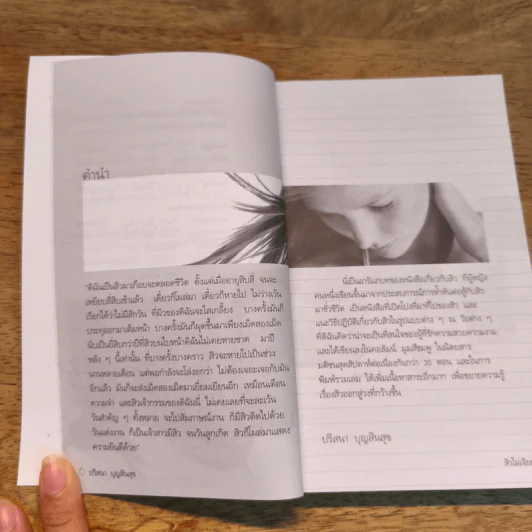 คำนำ
"ดิฉันเป็นสิวมาเกือบจะตลอดชีวิต ตั้งแต่เมื่ออายุสิบสี่ จนจะ
เหยียบสี่สิบเข้าแล้ว เดี๋ยวก็โผล่มา เดี๋ยวก็หายไป ไม่ว่างเว้น
เรียกได้ว่าไม่มีสักวัน ที่ผิวของดิฉันจะใสเกลี้ยง บางครั้งมันก็
ประทุออกมาเต็มหน้า บางครั้งมันก็ผุดขึ้นมาเพียงเม็ดสองเม็ด
นับเป็นยี่สิบกว่าปีที่สิวบนใบหน้าดิฉันไม่เคยหายขาด มาปี
หลัง ๆ นี้เท่านั้น ที่บางครั้งบางคราว สิวจะหายไปเป็นช่วง
นานหลายเดือน แต่พอกำลังจะโล่งอกว่า ไม่ต้องเจอะเจอกับมัน
อีกแล้ว มันก็จะส่งเม็ดสองเม็ดมาเยี่ยมเยียนอีก เหมือนเตือน
ความจำ และสิวเจ้ากรรมของดิฉันนี่ ไม่เคยเลยที่จะละเว้น
วันสำคัญ ๆ ทั้งหลาย จะไปสัมภาษณ์งาน ก็มีสิวติดไปด้วย
วันแต่งงาน ก็เป็นเจ้าสาวมีสิว จนวันลูกเกิด สิวก็โผล่มาแสดง
ความยินดีด้วย"
6 ปริสนา บุญสินสุข
นี่เป็นอารัมภบทของหนังสือเกี่ยวกับสิว ที่ผู้หญิง
คนหนึ่งเขียนขึ้นมาจากประสบการณ์การทำศึกต่อสู้กับสิว
มาชั่วชีวิต เป็นหนังสือที่เปิดโปงที่มาที่ไปของสิว และ
แนะวิธีปฏิบัติเกี่ยวกับสิวในรูปแบบต่าง ๆ ณ วัยต่าง ๆ
ที่ดิฉันคิดว่าน่าจะเป็นที่สนใจของผู้ที่รักความสวยความงาม
และได้เขียนลงในคอลัมน์ มุมสีชมพู ในนิตยสาร
มติชนสุดสัปดาห์ต่อเนื่องกันกว่า 20 ตอน และในการ
พิมพ์รวมเล่ม ได้เพิ่มเนื้อหาสาระอีกมาก เพื่อขยายความรู้
เรื่องสิวออกสู่วงที่กว้างขึ้น
ปริสนา บุญสินสุข